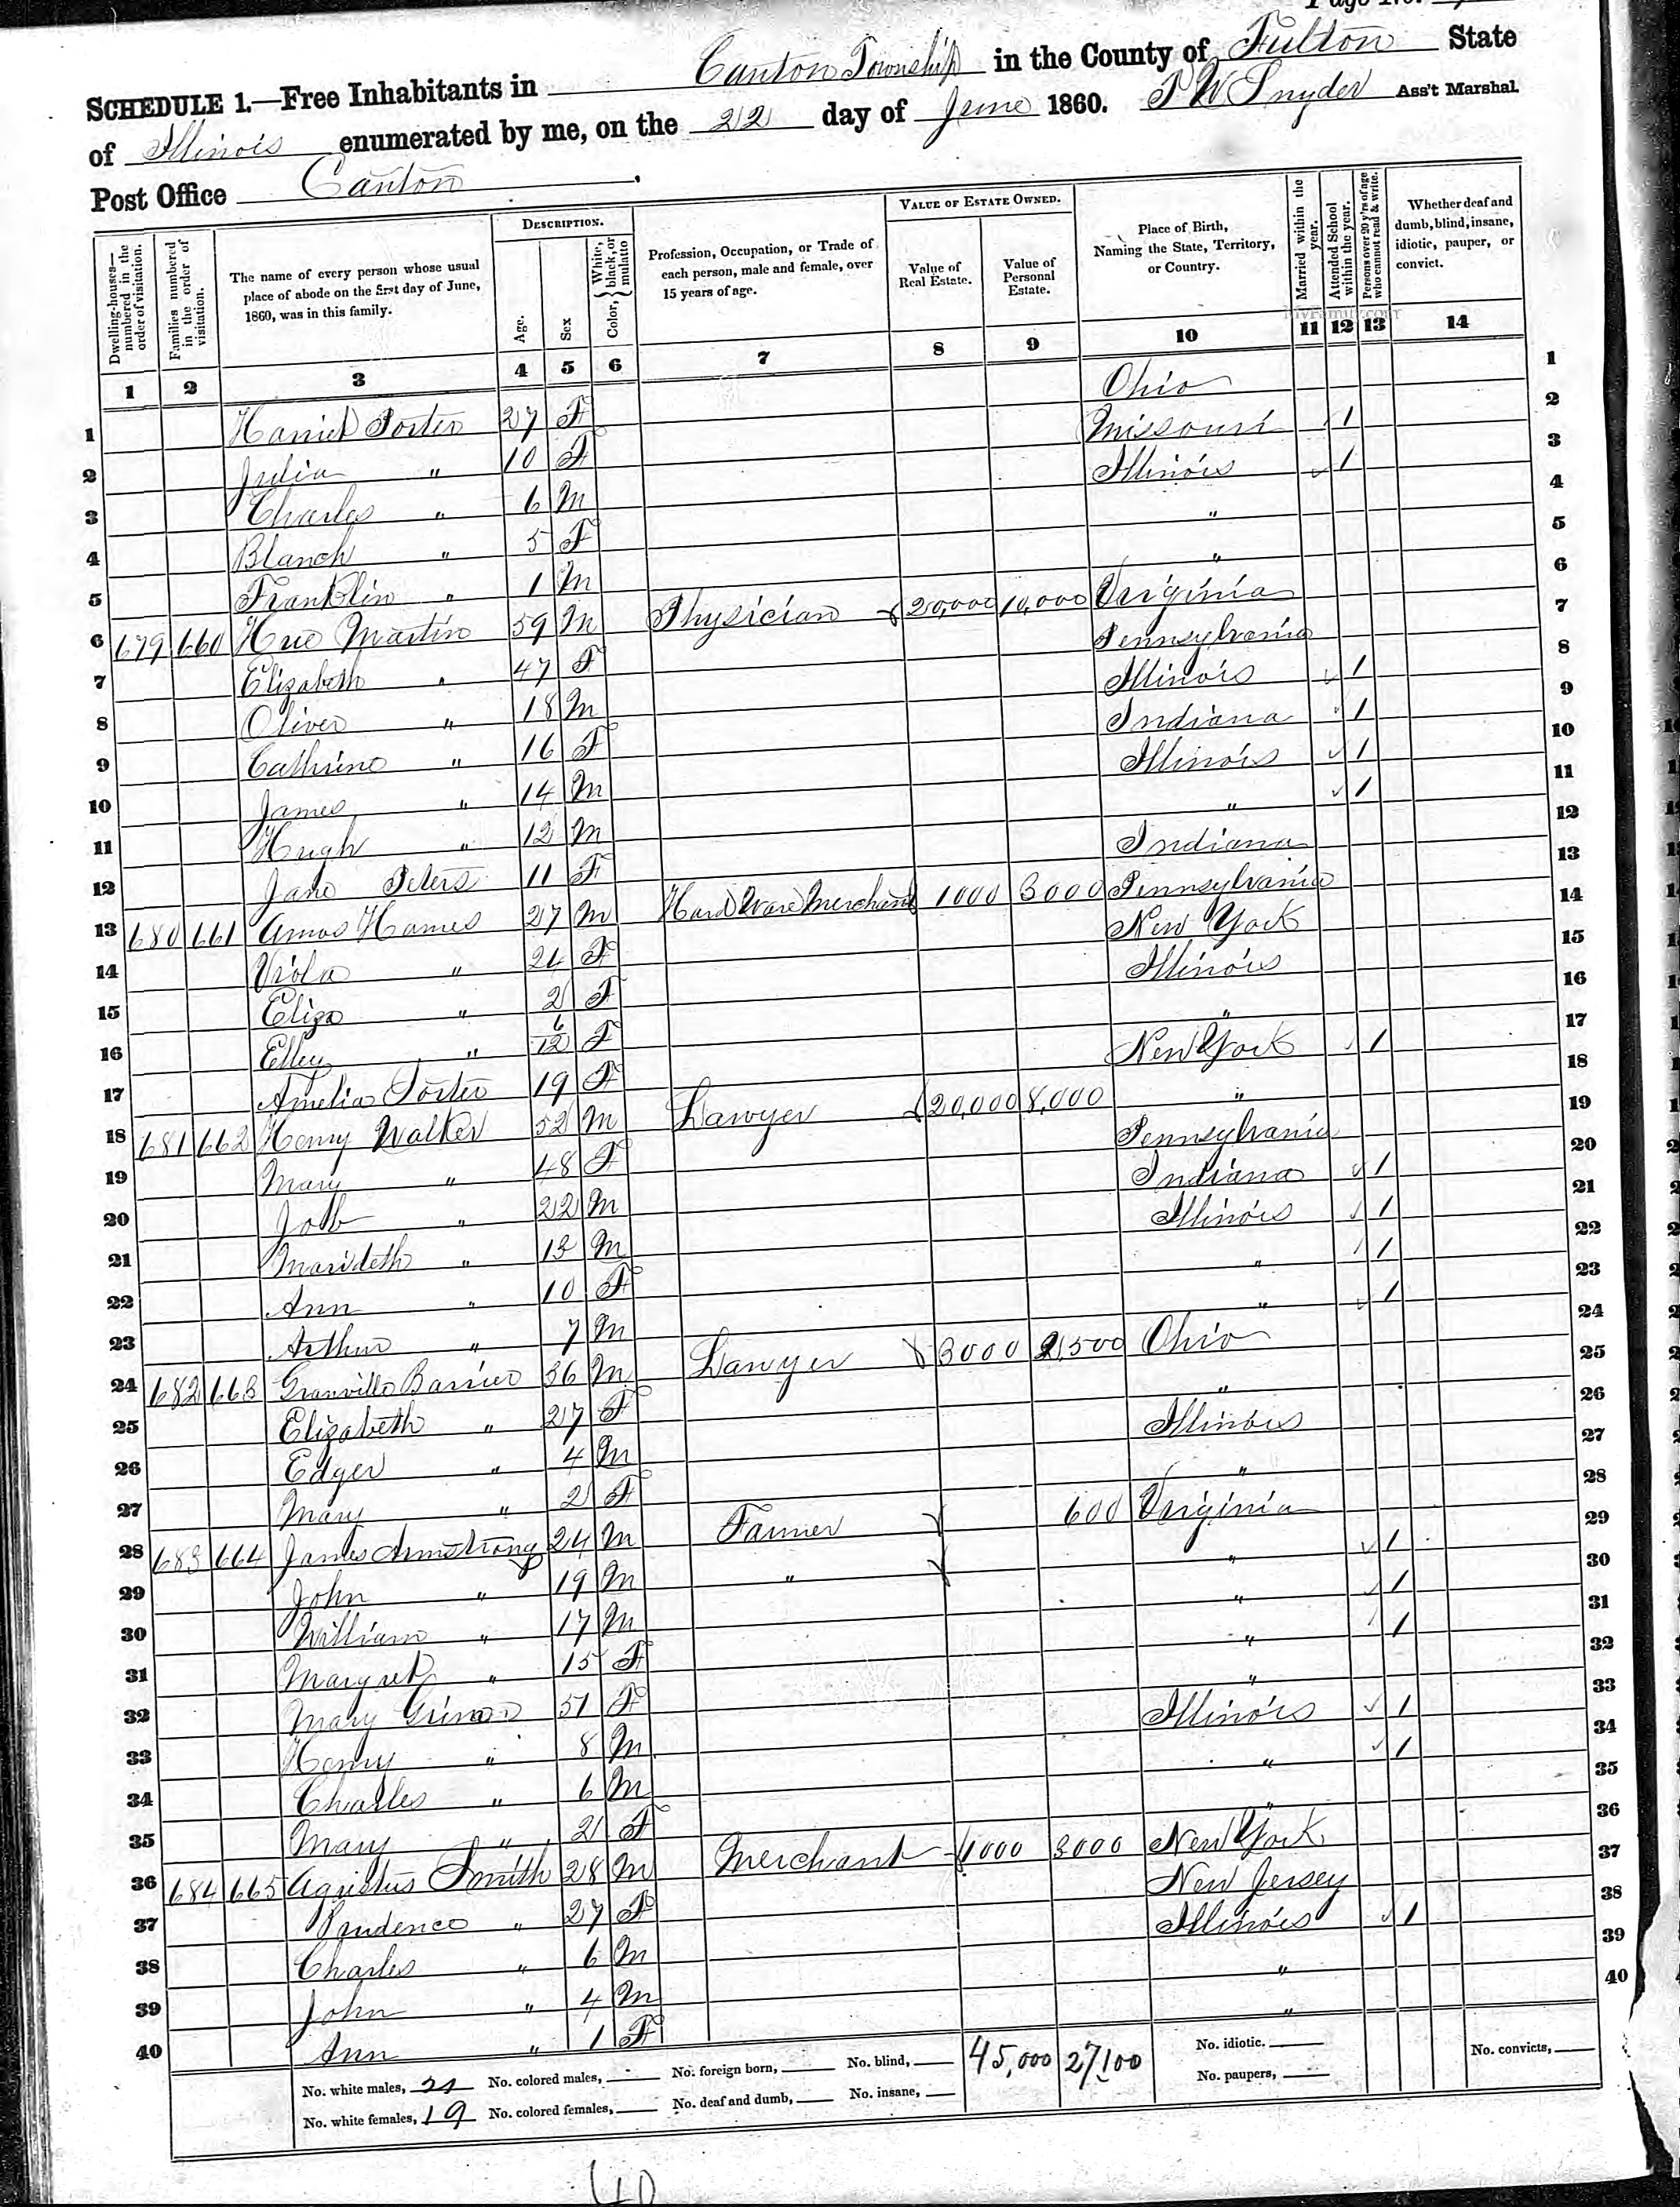 Page No.
SCHEDULE 1.—Free Inhabitants in Canton Township in the County of Fulton State
of Illinois enumerated by me, on the 22 day of June 1860. P W Snyder Ass't Marshal.
Post Office Canton.
Dwelling-houses—numbered in the order of visitation. | Families numbered in the order of visitation. | The name of every person whose usual place of abode on the first day of June, 1860, was in this family. | DESCRIPTION. | Age. | Sex | Color, { White, black, or mulatto | Profession, Occupation, or Trade of each person, male and female, over 15 years of age. | VALUE OF ESTATE OWNED. | Value of Real Estate. | Value of Personal Estate. | Place of Birth, Naming the State, Territory, or Country. | Married within the year. | Attended School within the year. | Persons over 20 y'rs of age who cannot read & write. | Whether deaf and dumb, blind, insane, idiotic, pauper, or convict.
MyFamily.com
1 2 3 4 5 6 7 8 9 10 11 12 13 14
1 Harriet Porter 27 F Ohio 1
2 Julia " 10 F Missouri 1 2
3 Charles " 6 M Illinois 1 3
4 Blanch " 5 F " 4
5 Franklin " 1 M " 5
6 679 660 Hue Martin 59 M Physician 20,000 10,000 Virginia 6
7 Elizabeth " 47 F Pennsylvania 7
8 Oliver " 18 M Illinois 1 8
9 Cathrine " 16 F Indiana 1 9
10 James " 14 M Illinois 1 10
11 Hugh " 12 M " 1 11
12 Jane Peters 11 F Indiana 12
13 680 661 Amos Hames 27 M Hard Ware Merchant 1000 3000 Pennsylvania 13
14 Viola " 24 F New York 14
15 Eliza " 2 F Illinois 15
16 Elley " 6/12 F " 16
17 Amelia Porter 19 F New York 1 17
18 681 662 Henry Walker 52 M Lawyer 20,000 8,000 " 18
19 Mary " 48 F Pennsylvania 19
20 Job " 22 M Indiana 1 20
21 Marideth " 13 M Illinois 1 21
22 Ann " 10 F " 1 22
23 Arthur " 7 M " 1 23
24 682 663 Granville Barrier 36 M Lawyer 3000 2,500 Ohio 24
25 Elizabeth " 27 F " 25
26 Edger " 4 M Illinois 26
27 Mary " 2 F " 27
28 683 664 James Armstrong 24 M Farmer 600 Virginia 28
29 John " 19 M " " 1 29
30 William " 17 M " 1 30
31 Margret " 15 F " 1 31
32 Mary 51 F " 32
33 Henry " 8 M Illinois 1 33
34 Charles " 6 M " 1 34
35 Mary " 2 F " 35
36 684 665 Agustus Smith 28 M Merchant 1000 3000 New York 36
37 Prudence " 27 F New Jersey 37
38 Charles " 6 M Illinois 1 38
39 John " 4 M " 39
40 Ann " 1 F " 40
No. white males, 21 No. colored males, No. foreign born, No. blind, 45,000 27,100 No. idiotic. No. convicts,
No. white females, 19 No. colored females, No. deaf and dumb, No. insane, No. paupers,
40